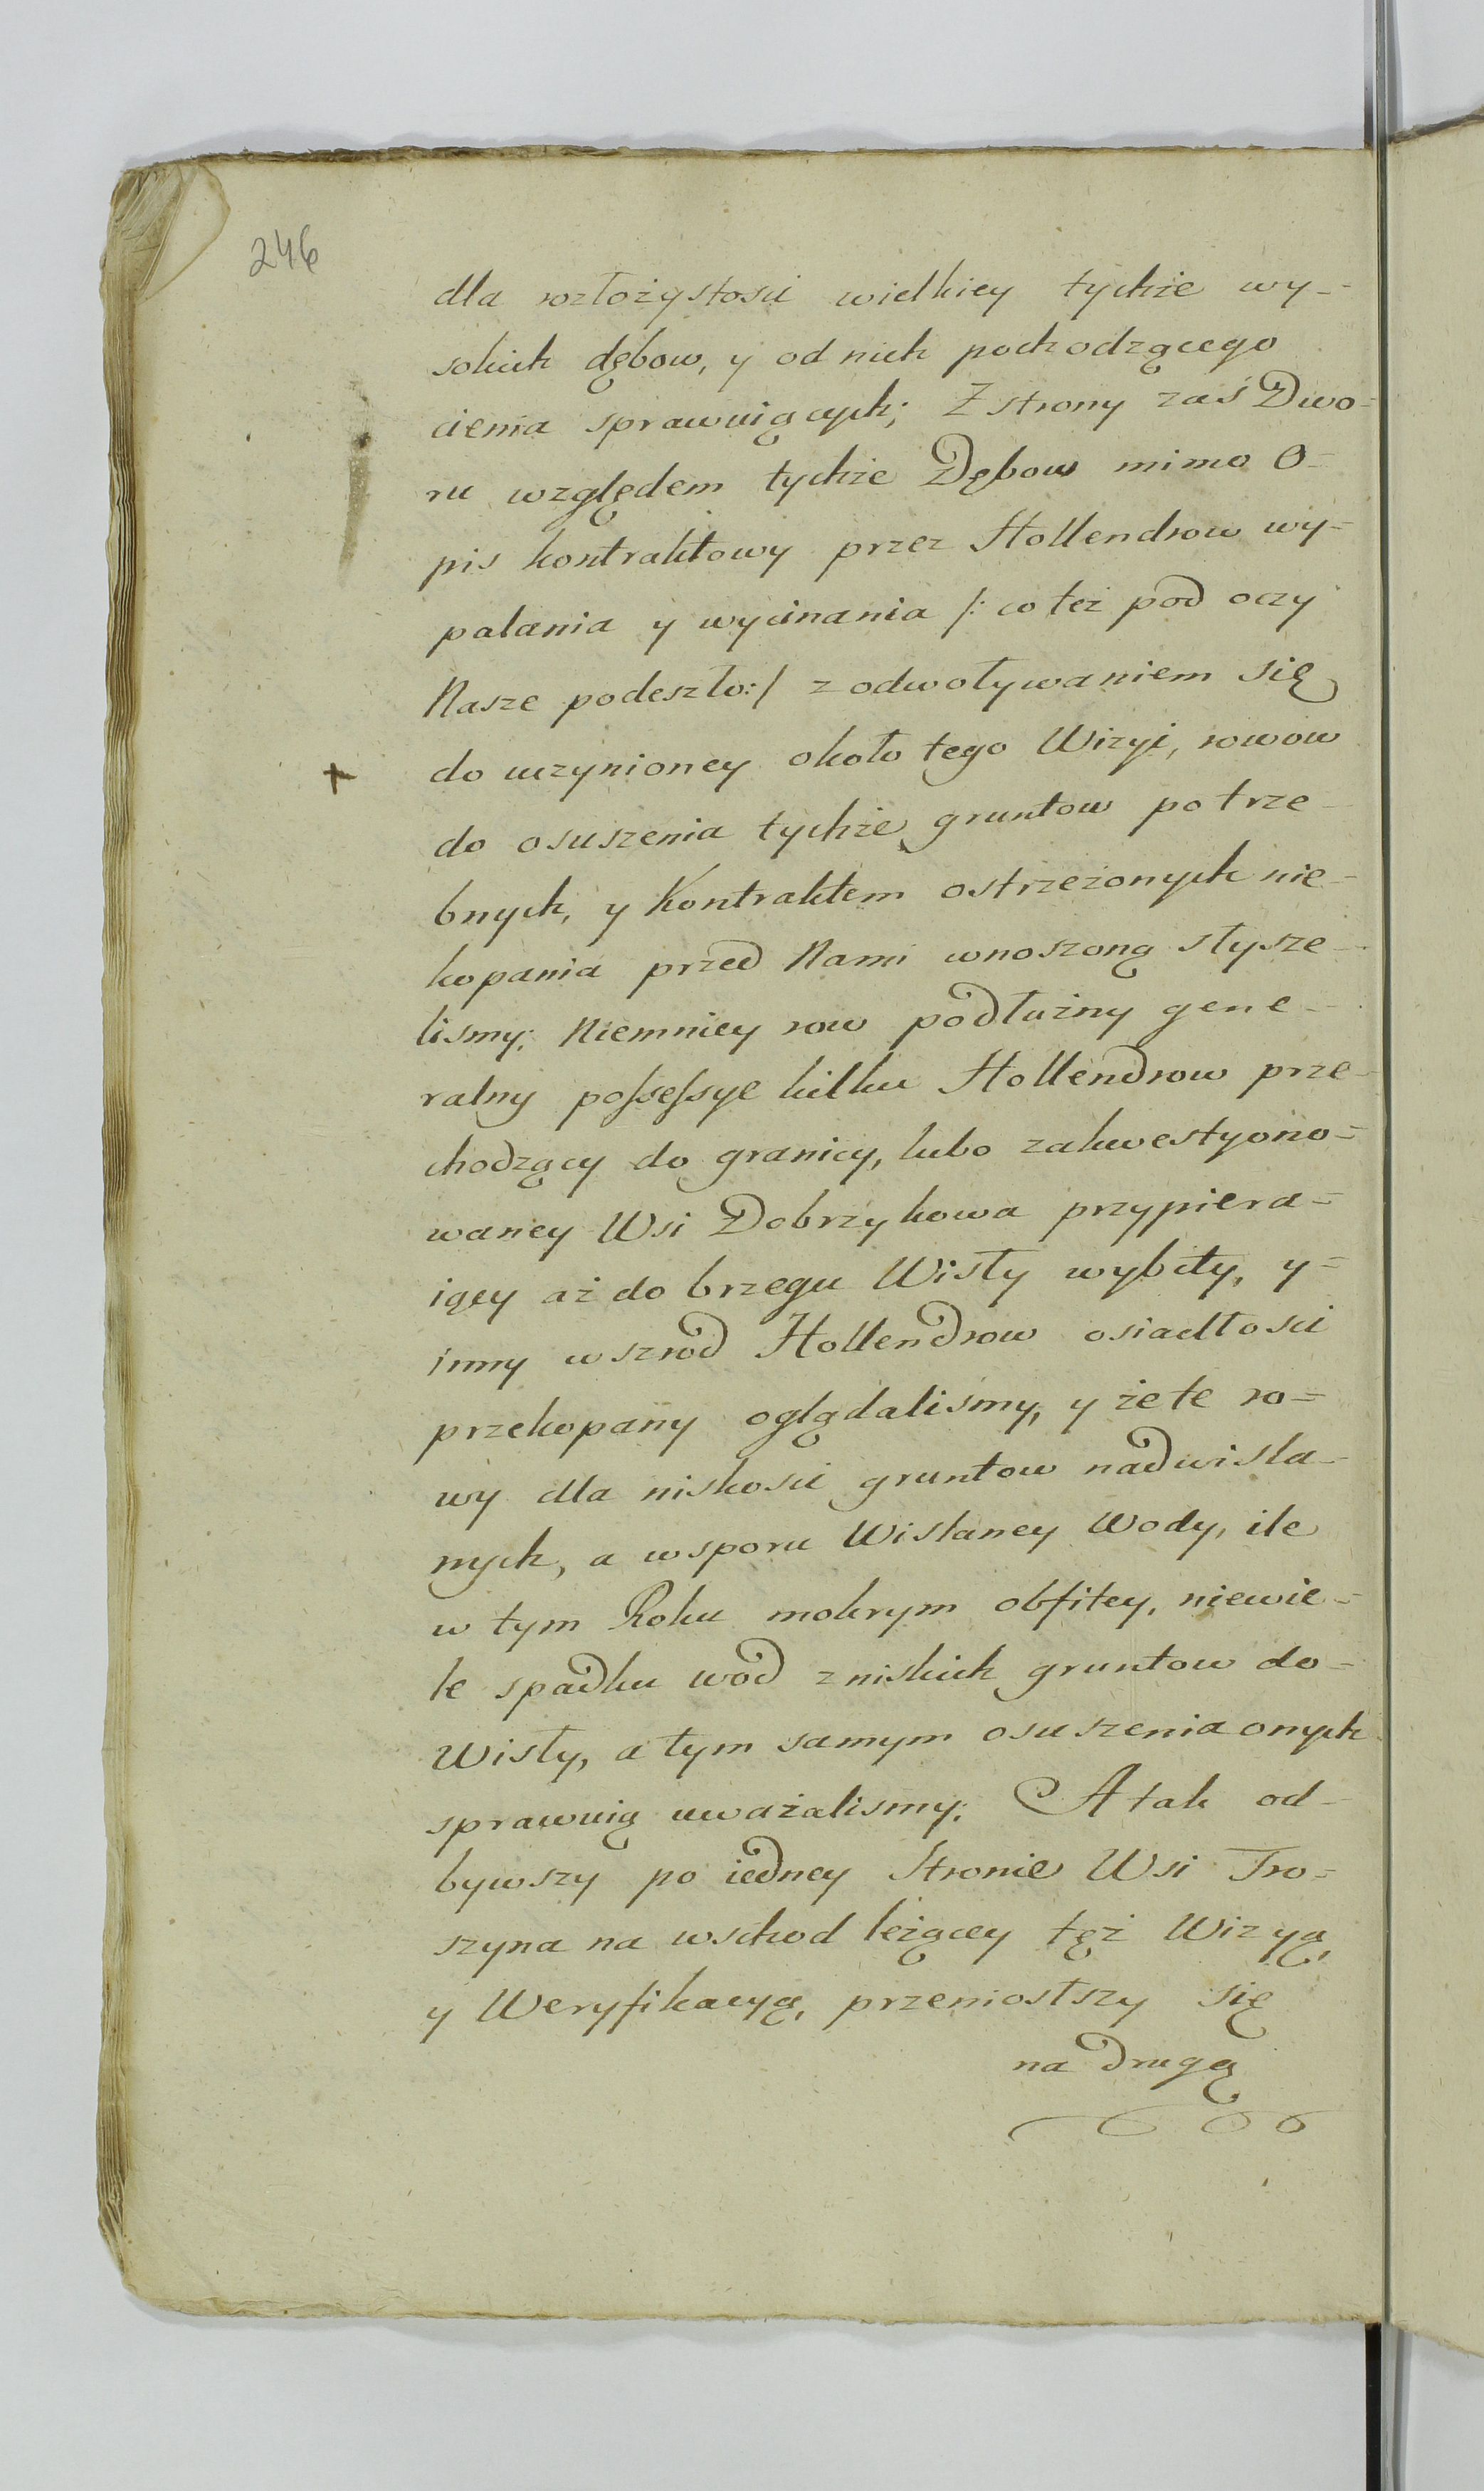 246
dla rozłożystości wielkiey tychże wy-
sokich dębow, y od nich pochodzącego
cienia sprawuiących; Z strony zaś Dwo-
ru względem tychże Dębow mimo O-
pis kontraktowy przez Hollendrow wy-
palania y wycinania /: co też pod oczy
Nasze podeszło:/ z odwoływaniem się
+ do uczynioney około tego Wizyi, rowow
do osuszenia tychże gruntow potrze-
bnych, y Kontraktem ostrzeżonych nie-
kopania przed Nami wnoszoną słysze-
lismy; Niemniey row podłużny gene-
ralny possessye kilku Hollendrow prze-
chodzący do granicy, lubo zakwestyono-
waney Wsi Dobrzykowa przypiera-
iący aż do brzegu Wisły wybity, y-
inny wszrod Hollendrow osiadłości
przekopany oglądaliśmy, y że te ro-
wy dla niskości gruntow nadwisla-
nych, a wsporu Wislaney Wody, ile
w tym Roku mokrym obfitey, niewie-
le spadku wod z niskich gruntow do-
Wisły, a tym samym osuszenia onych
sprawuią uważalismy; A tak od-
bywszy po iedney Stronie Wsi Tro-
szyna na wschod leżącey też Wizyą,
y Weryfikacyą, przeniosłszy się
na drugą